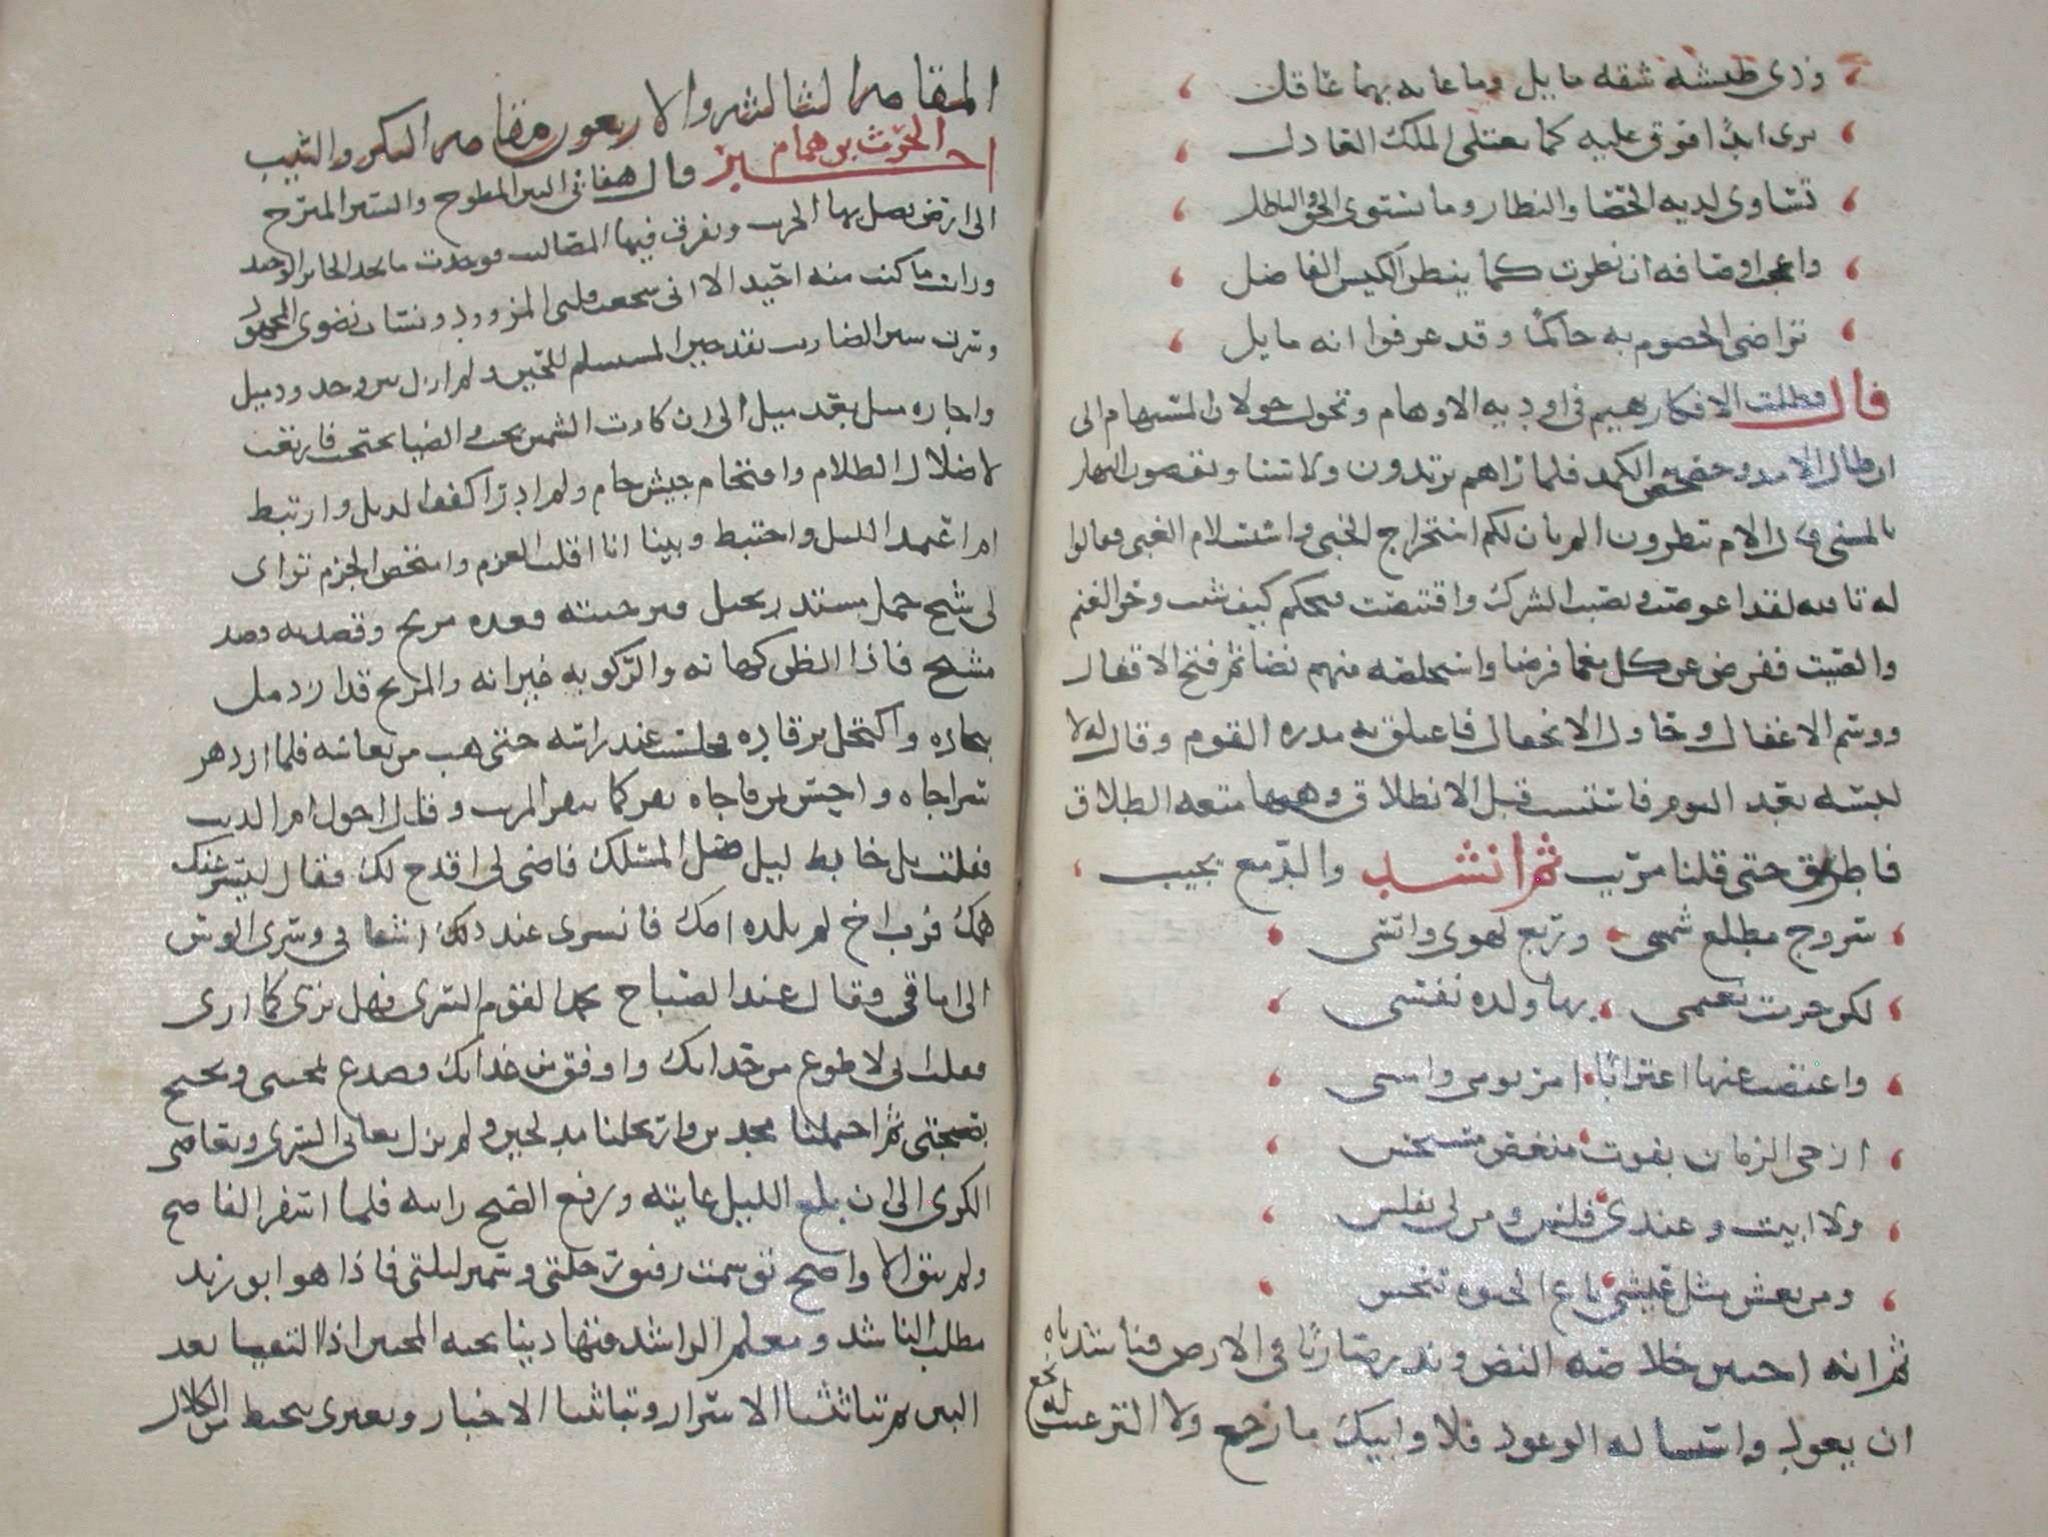 وذي طيشة شقه مايل وما عابه بهما عاقل
يرى ابدًا فوق علية كما يعتلى الملك العادل
تساوى لديه الحصا والنظار وما يستوى الحق والباطل
واعجب اوصافه ان نظرت كما ينظر الكيس الفاضل
تراضى الخصوم به حاكمًا وقد عرفوا انه مايل
قال فظلت الافكار تهيم في اودية الاوهام وتجول جولان المستهام الى
ان طال الامد وحصحص الكمد فلما رآهم يزندون ولا سنا ويقصون النهار
بالمنى قال الام تنظرون الم يان لكم استخراج الخبي واستسلام الغبي فقالوا
له تالله لقد اعوصت ونصبت الشرك واقتنصت فتحكم كيف شت وحز الغنم
والصيت ففرض عن كل معما فرضا واستخلصه منهم نضا ثم فتح الاقفال
ووسم الاغفال وحاول الانجفال فاعتلق به مدره القوم وقال له لا
لبسة بعد اليوم فاستنسب قبل الانطلاق وهبها متعة الطلاق
فاطرق حتى قلنا مريب ثم انشد والدمع يجيب
سروج مطلع شمسي وربع لهوي وانسي
لكن حرمت نعيمي بها ولذة نفسي
واعتضت عنها اغترابًا امر يومي وامسي
ازجي الزمان بقوت منغص مستخس
ولا ابيت وعندي فلس ومن لي بفلس
ومن يعش مثل عيشي باع الحيوة ببخس
ثم انه احتبن خلاصة النض وندر ضاربًا في الارض فناشدناه
ان يعود واسنينا له الوعود فلا وابيك ما رجع ولا الترغيب له نجع
المقامه الثالثه والاربعون مقامه البكر والثيب
اخبر الحرث بن همام قال هفا بي البين المطوح والسير المبرح
الى ارض يضل بها الخريت وتفرق فيها المصاليت فوجدت ما يجد الحاير الوحيد
ورايت ما كنت منه احيد الا اني شجعت قلبي المزوود ونسات نضوي المجهود
وسرت سير الضارب بقدحين المستسلم للحين ولم ازل بين وخد وذميل
واجازة ميل بعد ميل الى ان كادت الشمس تجب والضيا يحتجب فارتعت
لاضلال الظلام واقتحام جيش حام ولم ادر أاكفت الذيل وارتبط
ام اعتمد الليل واختبط وبينا انا اقلب العزم وامتخض الحزم تراى
لي شبح جمل مستذر بجبل فترجيته قعدة مريح وقصدته قصد
مشيح فاذا الظن كهانه والركوبه عيرانه والمريح قد ازدمل
ببجاده واكتحل برقاده فجلست عند راسه حتى هب من نعاسه فلما ازدهر
سراجاه واحس بمن فاجاه نفر كما ينفر المريب وقال اخوك ام الذيب
فقلت بل خابط ليل ضل المسلك فاضي لي اقدح لك فقال ليسر عنك
همك فرب اخ لم تلده امك فانسرى عند ذلك اشفاقي وسرى الوسن
الى اماقي وقال عند الصباح يحمد القوم السرى فهل ترى كما ارى
فقلت اني لاطوع من حذايك واوفق من غذايك فصدع بمحبتي وبخبخ
بصحبتي ثم احتملنا مجدين وارتحلنا مدلجين ولم نزل نعاني السرى ونعاصي
الكرى الى ان بلغ الليل غايته ورفع الصبح رايته فلما اسفر الفاضح
ولم يبق الا واضح توسمت رفيق رحلتي وسمير ليلتي فاذا هو ابو زيد
مطلب الناشد ومعلم الراشد فتهادينا تحية المحبين اذا التقيا بعد
البين ثم تباثثنا الاسرار وتناثثنا الاخبار وبعيري ينحط من الكلال